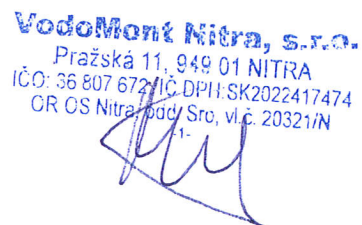 VodoMont Nitra, s.r.o.
Pražská 11, 949 01 NITRA
IČO: 36 807 672, IČ DPH: SK2022417474
OR OS Nitra, odd. Sro, vl.č. 20321/N
-1-